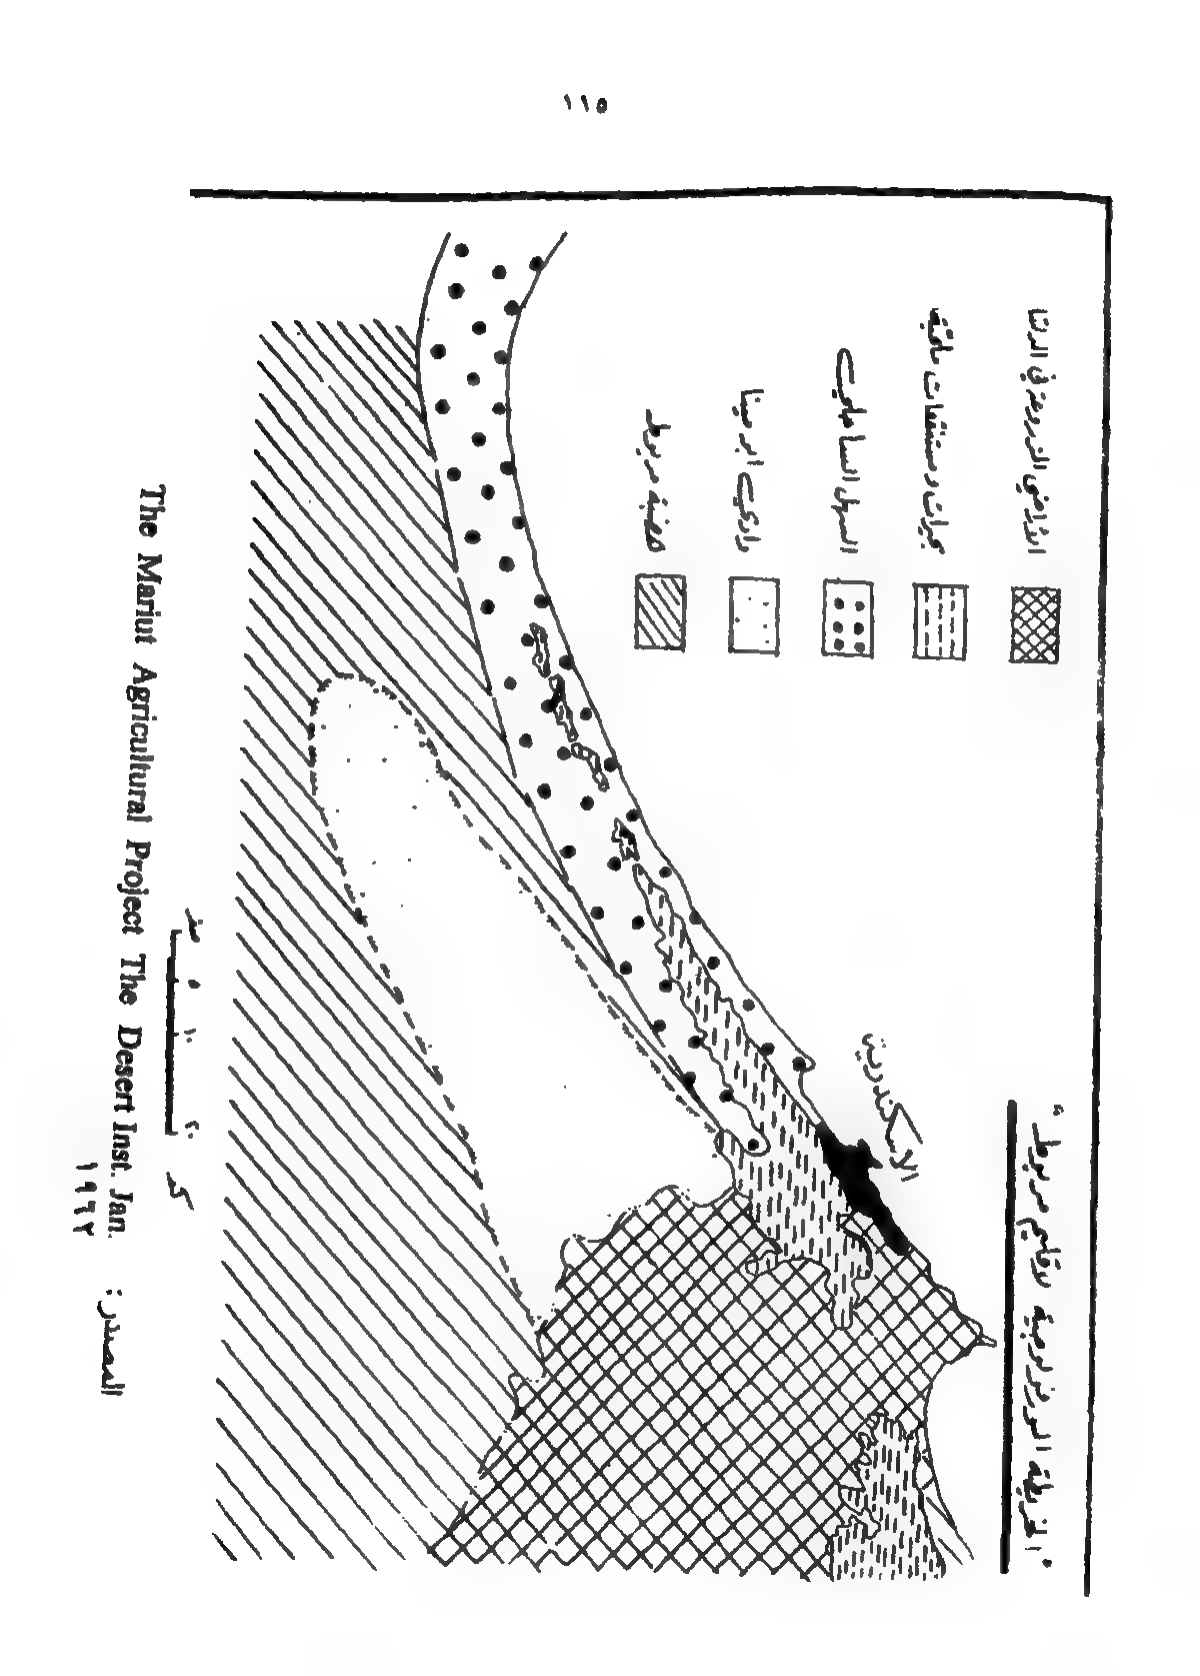 ١١٥
"الخريطة المورفولوجية لاقليم مريوط"
الاسكندرية
الأراضي المزروعة في الدلتا
بحيرات ومستنقعات ملحية
السهل الساحلي
وادي ابو مينا
هضبة مريوط
٥ ١٠ ٢٠ كم
المصدر :
The Mariut Agricultural Project The Desert Inst. Jan.
١٩٦٢